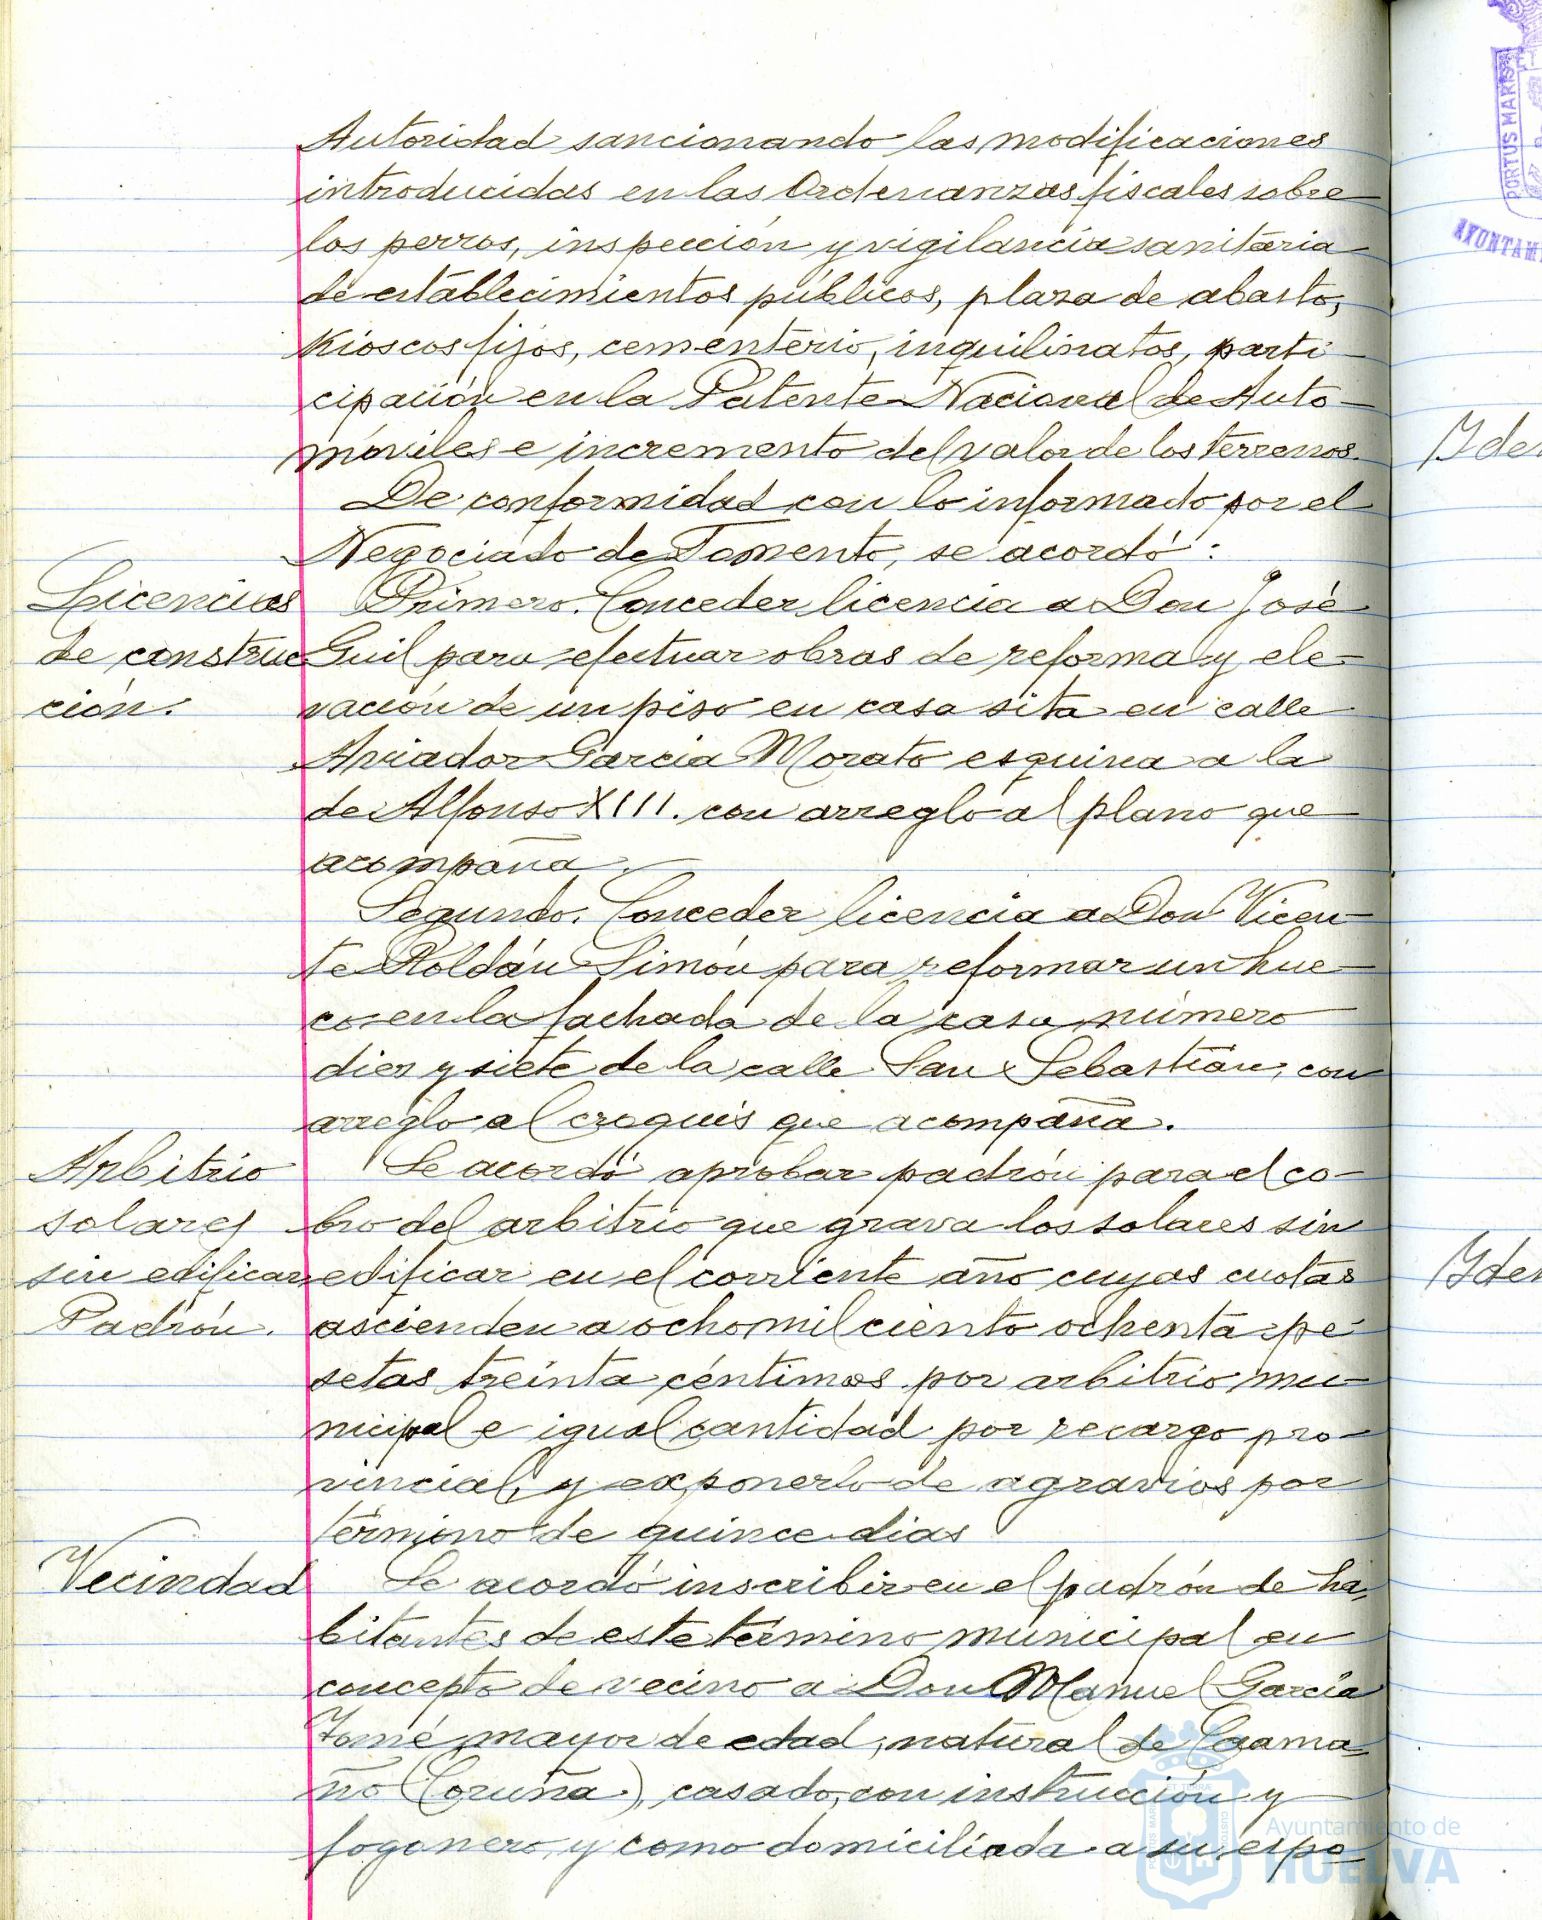 Autoridad sancionando las modificaciones
introducidas en las Ordenanzas fiscales sobre
los perros, inspección y vigilancia sanitaria
de establecimientos públicos, plaza de abasto,
Kioscos fijos, cementerio, inquilinatos, parti-
cipación en la Patente Nacional de Auto-
móviles e incremento del valor de los terrenos.
De conformidad con lo informado por el
Negociado de Fomento, se acordó:
Licencias
de construc
ción.
Primero. Conceder licencia a Don José
Guil para efectuar obras de reforma y ele-
vación de un piso en casa sita en calle
Aviador Garcia Morato esquina a la
de Alfonso XIII. con arreglo al plano que
acompaña.
Segundo. Conceder licencia a Don Vicen-
te Roldán Simón para reformar un hue-
co en la fachada de la casa número
diez y siete de la calle San Sebastián, con
arreglo al croquis que acompaña.
Arbitrio
solares
sin edificar
Padrón.
Se acordó aprobar padrón para el co-
bro del arbitrio que grava los solares sin
edificar en el corriente año cuyas cuotas
ascienden a ocho mil ciento ochenta pe-
setas treinta céntimos por arbitrio mu-
nicipal e igual cantidad por recargo pro-
vincial, y exponerlo de agravios por
término de quince dias
Vecindad
Se acordó inscribir en el padrón de ha-
bitantes de este término municipal en
concepto de vecino a Don Manuel García
Tomé mayor de edad, natural de Caama-
ño (Coruña), casado, con instrucción y
fogonero y como domiciliada a su espo
Yde
Yde
PORTUS MARIS
AYUNTAM
Ayuntamiento de
HUELVA